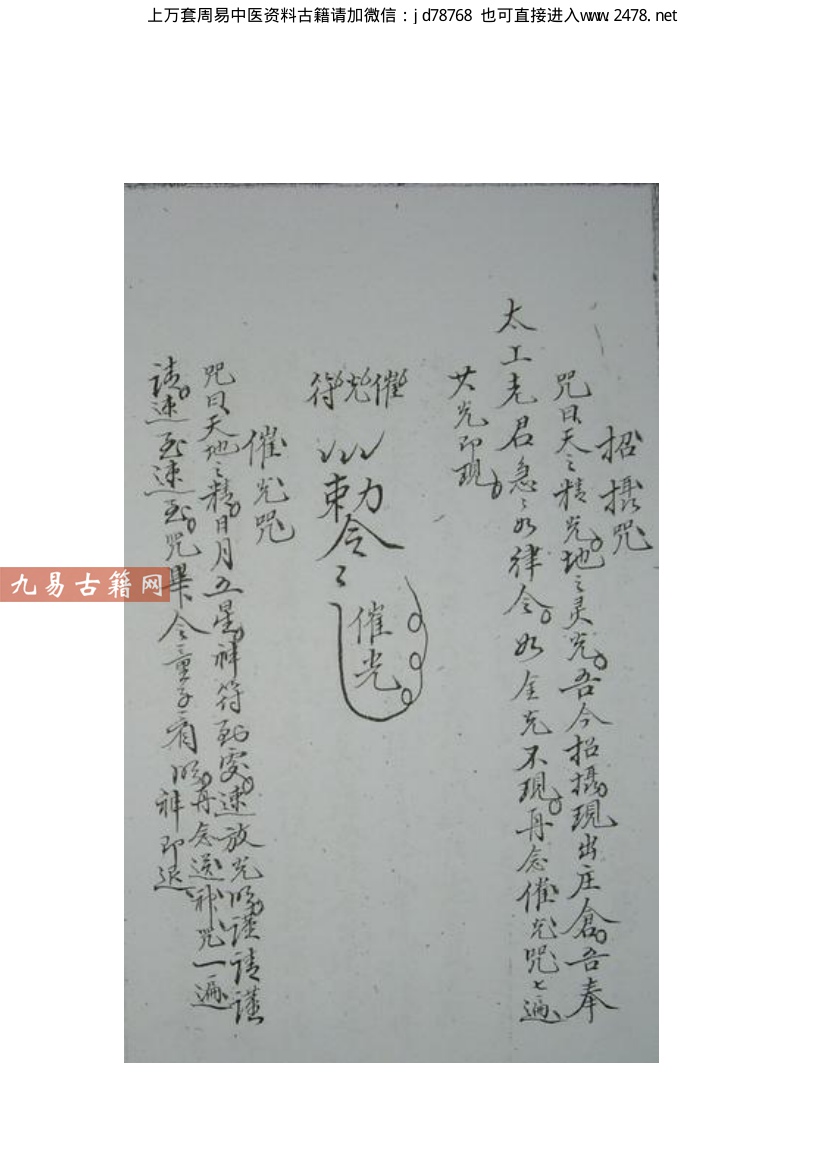 上万套周易中医资料古籍请加微信：jd78768 也可直接进入www.2478.net
招摄咒
咒曰天之精光。地之灵光。吾今招摄。現出庄倉。吾奉
太上老君急急如律令。如金光不現。再念催光咒七遍
其光即現。
催光符
勅令
催光
催光咒
咒曰天地之精。日月五星。神符到處。速放光明。謹请謹
请。速至速至。咒畢令童子看明。再念送神咒一遍
神即退
九易古籍网